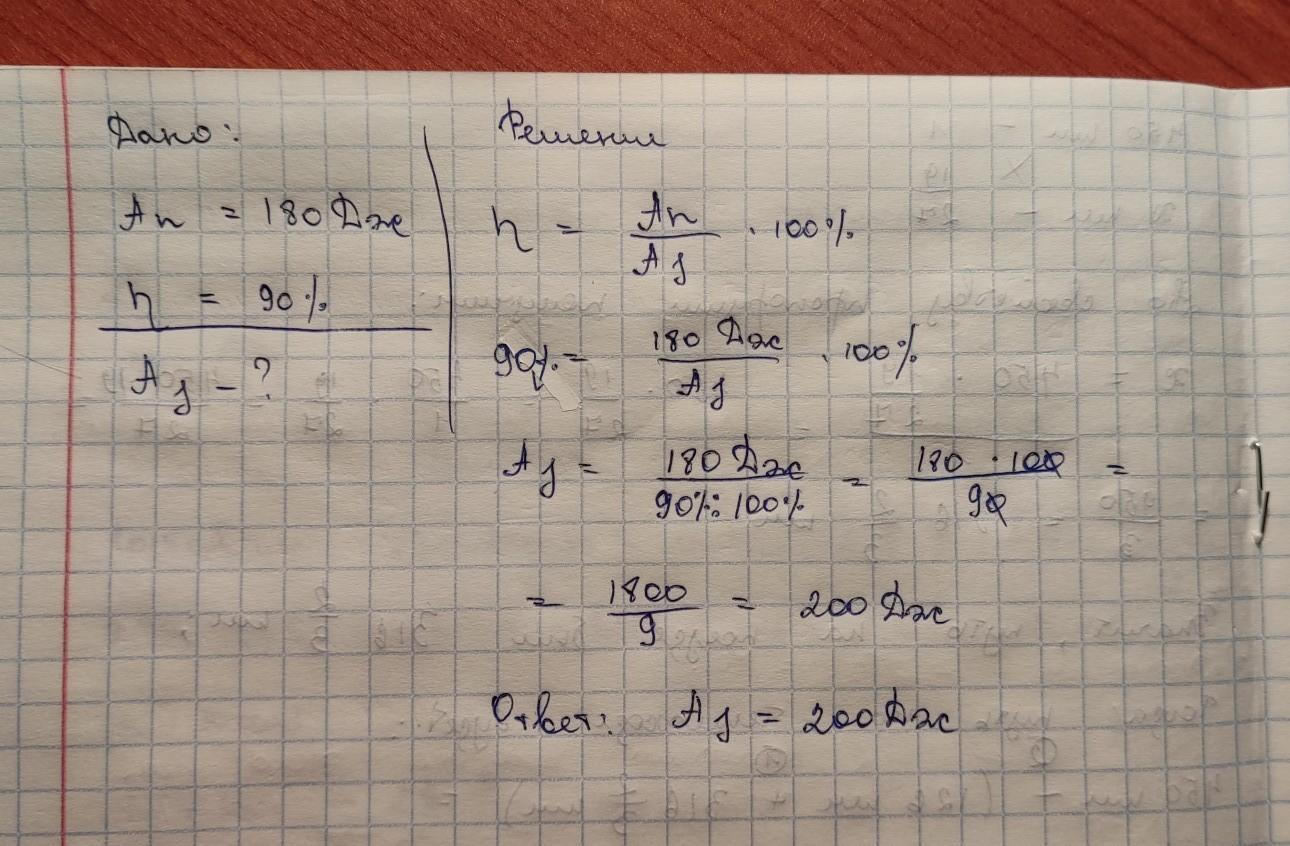 Дано:
Aп = 180 Дж
η = 90%
Aз - ?
Решение
η = Aп / Aз · 100%
90% = 180 Дж / Aз · 100%
Aз = 180 Дж / 90% : 100% = 180 · 100 / 90 =
= 1800 / 9 = 200 Дж
Ответ: Aз = 200 Дж